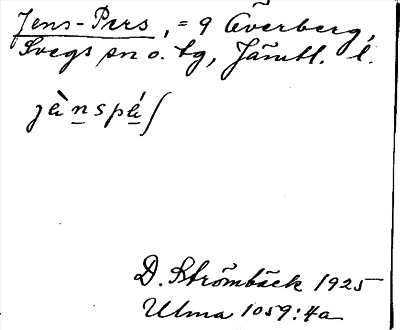 Jens-Pers, = g Överberg,
Svegs sn o. tg, Jämtl. l.
jènspéʃ
D. Strömbäck 1925
Ulma 1059:4a